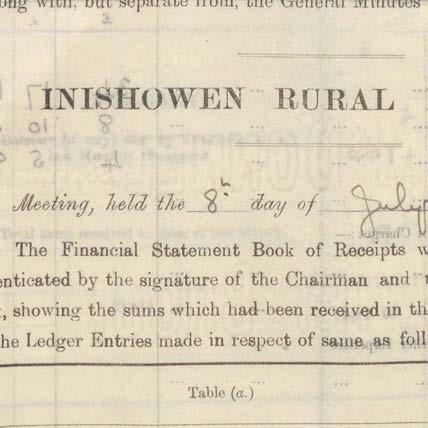 ong with, but separate from, the General Minutes
INISHOWEN RURAL
Meeting, held the 8th day of July
The Financial Statement Book of Receipts w
enticated by the signature of the Chairman and
, showing the sums which had been received in th
he Ledger Entries made in respect of same as foll
Table (a.)